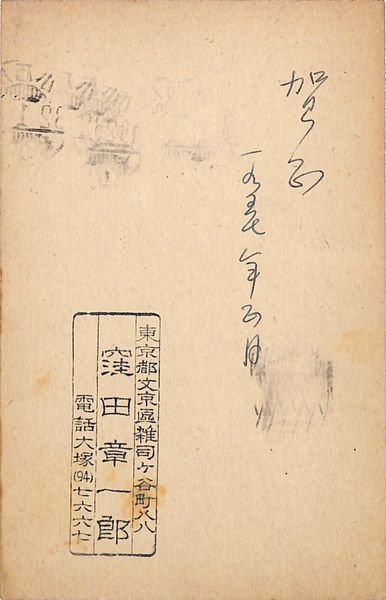 賀正
一九五七年正月
東京都文京區雑司ヶ谷町八八
窪田章一郎
電話大塚(94)七六六七